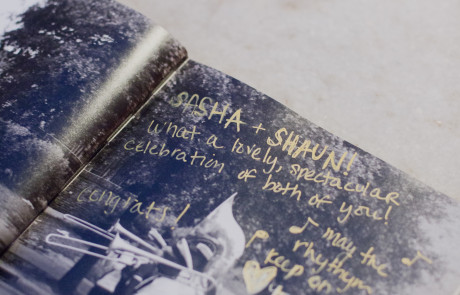 SASHA + SHAUN!
What a lovely, spectacular
celebration of both of you!
congrats!
♪ may the ♪
rhythym
keep on